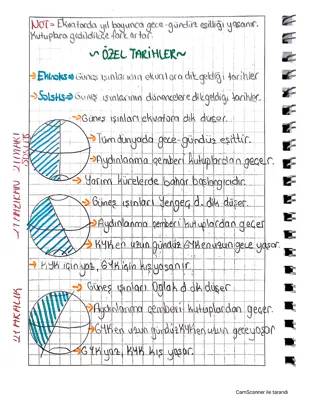 NOT= Ekvatorda yıl boyunca gece-gündüz eşitliği yaşanır.
Kutuplara gidildikçe fark artar.
~ÖZEL TARİHLER~
→Ekinoks⇒ Güneş ışınlarının ekvatora dik geldiği tarihler
→Solstis⇒ Güneş ışınlarının dönencelere dik geldiği tarihler.
→Güneş ışınları ekvatora dik düşer.
→Tüm dünyada gece-gündüz eşittir.
→Aydınlanma çemberi kutuplardan geçer.
→ Yarım kürelerde bahar başlangıcıdır.
21 MART
→ Güneş ışınları Yengeç d. dik düşer.
→Aydınlanma çemberi kutuplardan geçer
→ KYK en uzun gündüz GYK en uzun gece yaşar.
→ KYK için yaz, GYK için kış yaşanır.
21 HAZİRAN
→ Güneş ışınları Oğlak d. dik düşer
→Aydınlanma çemberi kutuplardan geçer.
→GYK en uzun gündüz KYK en uzun gece yaşar
→GYK yaz, KYK kış yaşar.
21 ARALIK
CamScanner ile tarandı